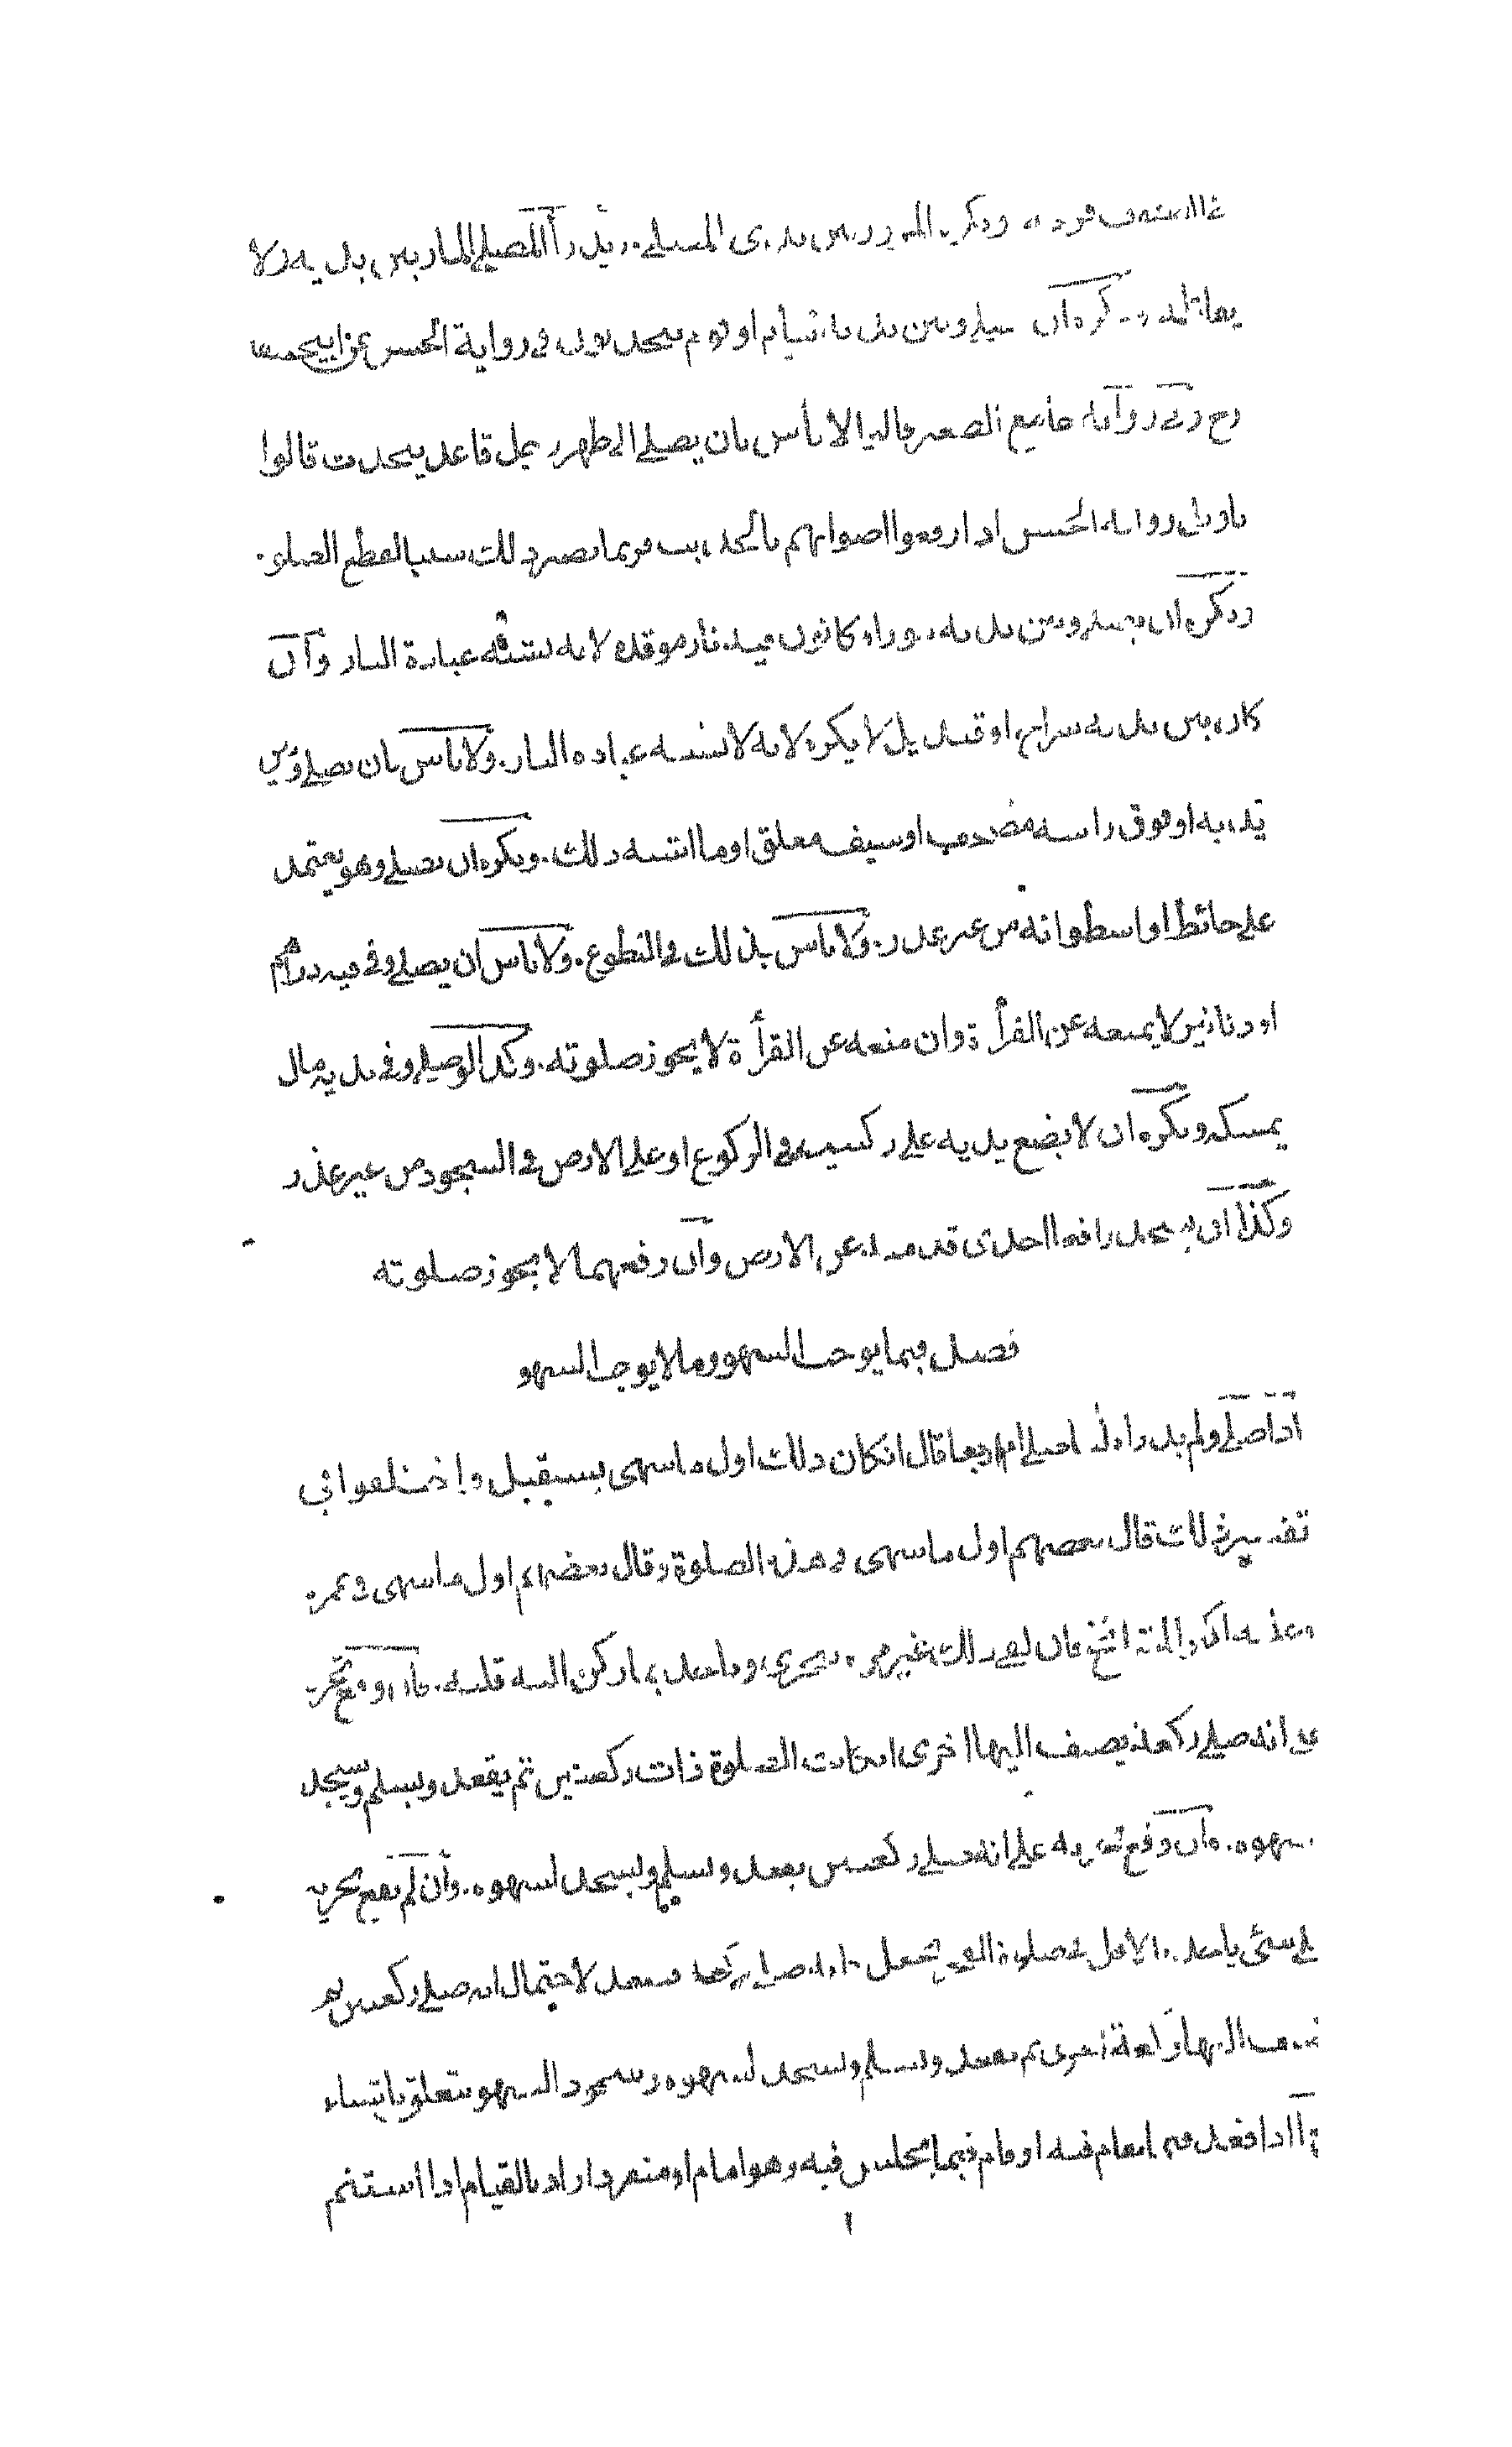 ويكره المرور بين يدي المصلي ويدرأ المصلي المار بين يديه ولا
يقاتله ويكره ان يصلي وبين يديه نيام او قوم يتحدثون في رواية الحسن عن ابيحنيفة
رح وفي رواية جامع الصغير قالوا لا باس بان يصلي الى ظهر رجل قاعد يتحدث قالوا
تاويل رواية الحسن اذا رفعوا اصواتهم بالحديث فربما يصير ذلك سببا لقطع الصلوة
ويكره ان يصلي وبين يديه تنور او كانون فيه نار موقدة لانه يشبه عبادة النار وان
كان بين يديه سراج او قنديل لا يكره لانه لا يشبه عبادة النار. ولا باس بان يصلي وبين
يديه او فوق راسه مصحف او سيف معلق او ما اشبه ذلك. ويكره ان يصلي وهو يعتمد
على حائط او اسطوانة من غير عذر. ولا باس بذلك في التطوع. ولا باس ان يصلي وفي فيه دراهم
او دنانير لا يمنعه عن القرأة وان منعه عن القرأة لا يجوز صلوته. وكذا لو صلى وفي يديه مال
يمسكه ويكره ان لا يضع يديه على ركبتيه في الركوع او على الارض في السجود من غير عذر
وكذا ان يسجد رافعا احدى قدميه عن الارض وان رفعهما لا يجوز صلوته
فصل فيما يوجب السهو وما لا يوجب السهو
اذا صلى ولم يدر اثلثا صلى ام اربعا قال ان كان ذلك اول ما سهى يستقبل واختلفوا في
تفسير ذلك قال بعضهم اول ما سهى في هذه الصلوة وقال بعضهم اول ما سهى في عمره
وعليه اكثر المشائخ فان لقي ذلك غير مرة يتحرى وما يعد به اركن اليه قلبه. فان وقع تحريه
على انه صلى ركعة يضيف اليها اخرى ان كانت الصلوة ذات ركعتين ثم يقعد ويسلم ويسجد
لسهوه. وان وقع تحريه على انه صلى ركعتين يقعد ويسلم ويسجد لسهوه. وان لم يقع تحريه
على شئ ياخذ بالاقل في صلوة الفجر يجعل كانه صلى ركعة فيقعد لاحتمال انه صلى ركعتين ثم
يضيف اليها ركعة اخرى ثم يقعد ويسلم ويسجد لسهوه وسجود السهو يتعلق باشياء
اذا قعد فيما يقام فيه او قام فيما يجلس فيه وهو امام او منفرد اراد بالقيام اذا استتم